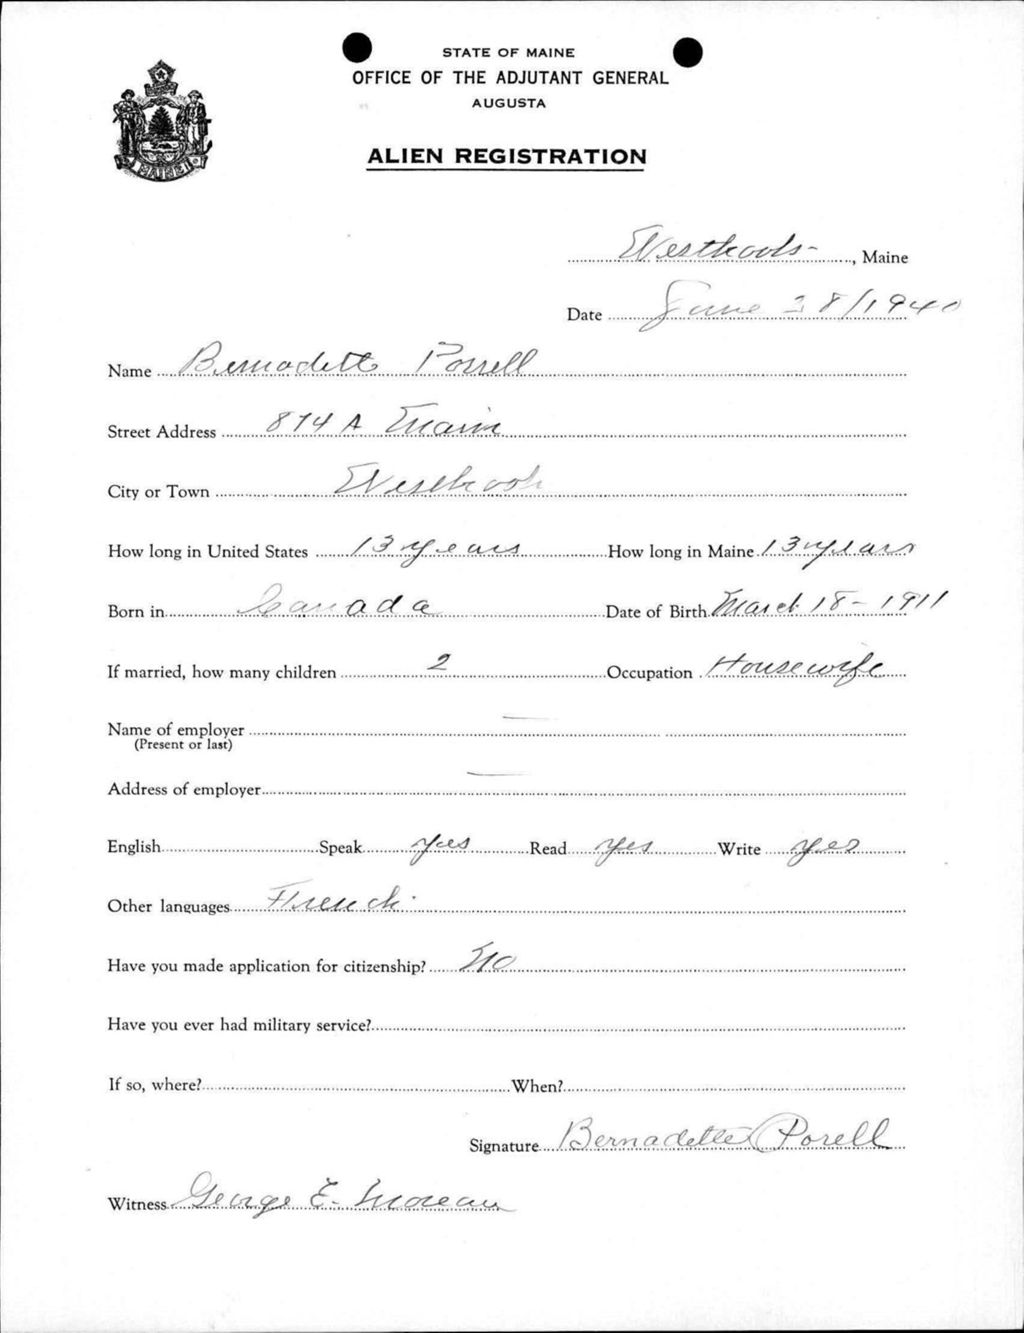 STATE OF MAINE
OFFICE OF THE ADJUTANT GENERAL
AUGUSTA
ALIEN REGISTRATION
MAINE
Westbrook, Maine
Date June 28/1940
Name Bernadette Porell
Street Address 874 A Main
City or Town Westbrook
How long in United States 13 years How long in Maine 13 years
Born in Canada Date of Birth March 18-1911
If married, how many children 2 Occupation Housewife
Name of employer —
(Present or last)
Address of employer —
English Speak yes Read yes Write yes
Other languages French
Have you made application for citizenship? No
Have you ever had military service?
If so, where? When?
Signature Bernadette Porell
Witness George E. Moreau